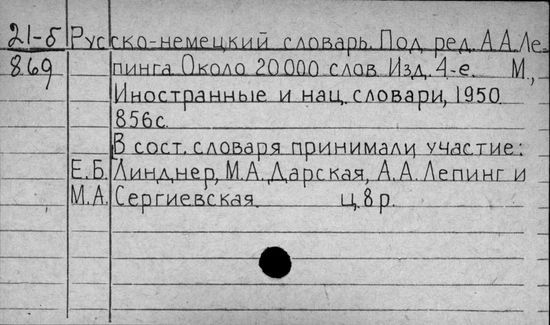 21-б Русско-немецкий словарь. Под ред. А.А.Ле-
869 пинга. Около 20000 слов. Изд. 4-е. М.,
Иностранные и нац. словари, 1950.
856с.
В сост. словаря принимали участие:
Е.Б. Линднер, М.А. Дарская, А.А. Лепинг и
М.А. Сергиевская. Ц. 8 р.